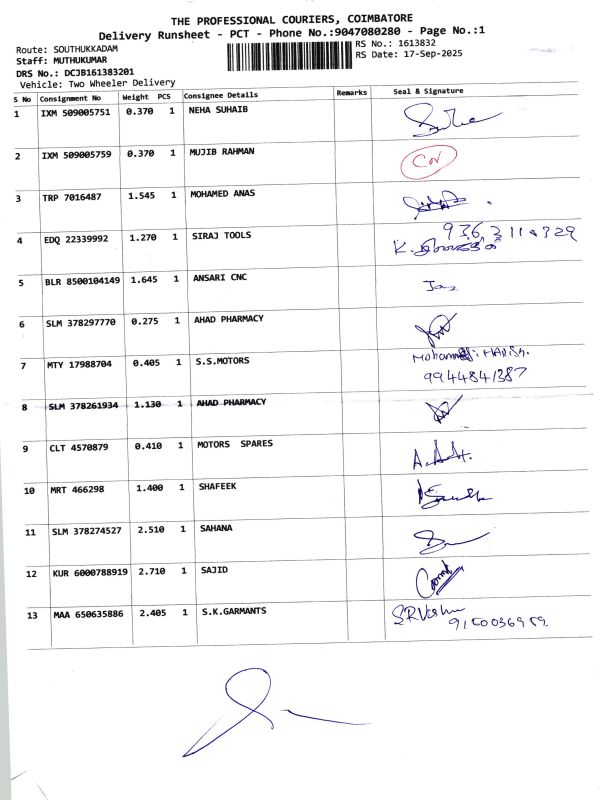 THE PROFESSIONAL COURIERS, COIMBATORE
Delivery Runsheet - PCT - Phone No.:9047080280 - Page No.:1
Route: SOUTHUKKADAM RS No.: 1613832
Staff: MUTHUKUMAR RS Date: 17-Sep-2025
DRS No.: DCJB161383201
Vehicle: Two Wheeler Delivery
S No Consignment No Weight PCS Consignee Details Remarks Seal & Signature
1 IXM 509005751 0.370 1 NEHA SUHAIB
2 IXM 509005759 0.370 1 MUJIB RAHMAN
3 TRP 7016487 1.545 1 MOHAMED ANAS
4 EDQ 22339992 1.270 1 SIRAJ TOOLS
5 BLR 8500104149 1.645 1 ANSARI CNC
6 SLM 378297770 0.275 1 AHAD PHARMACY
7 MTY 17988704 0.405 1 S.S.MOTORS
9944841387
8 SLM 378261934 1.130 1 AHAD PHARMACY
9 CLT 4570879 0.410 1 MOTORS SPARES
10 MRT 466298 1.400 1 SHAFEEK
11 SLM 378274527 2.510 1 SAHANA
12 KUR 6000788919 2.710 1 SAJID
13 MAA 650635886 2.405 1 S.K.GARMANTS